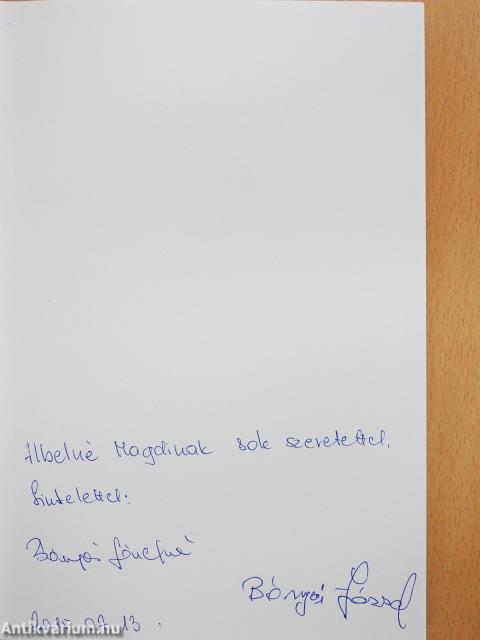 Albelné Magdinak sok szeretettel.
tisztelettel:
Bányai Józsefné
Bányai József
13.
Antikvarium.hu